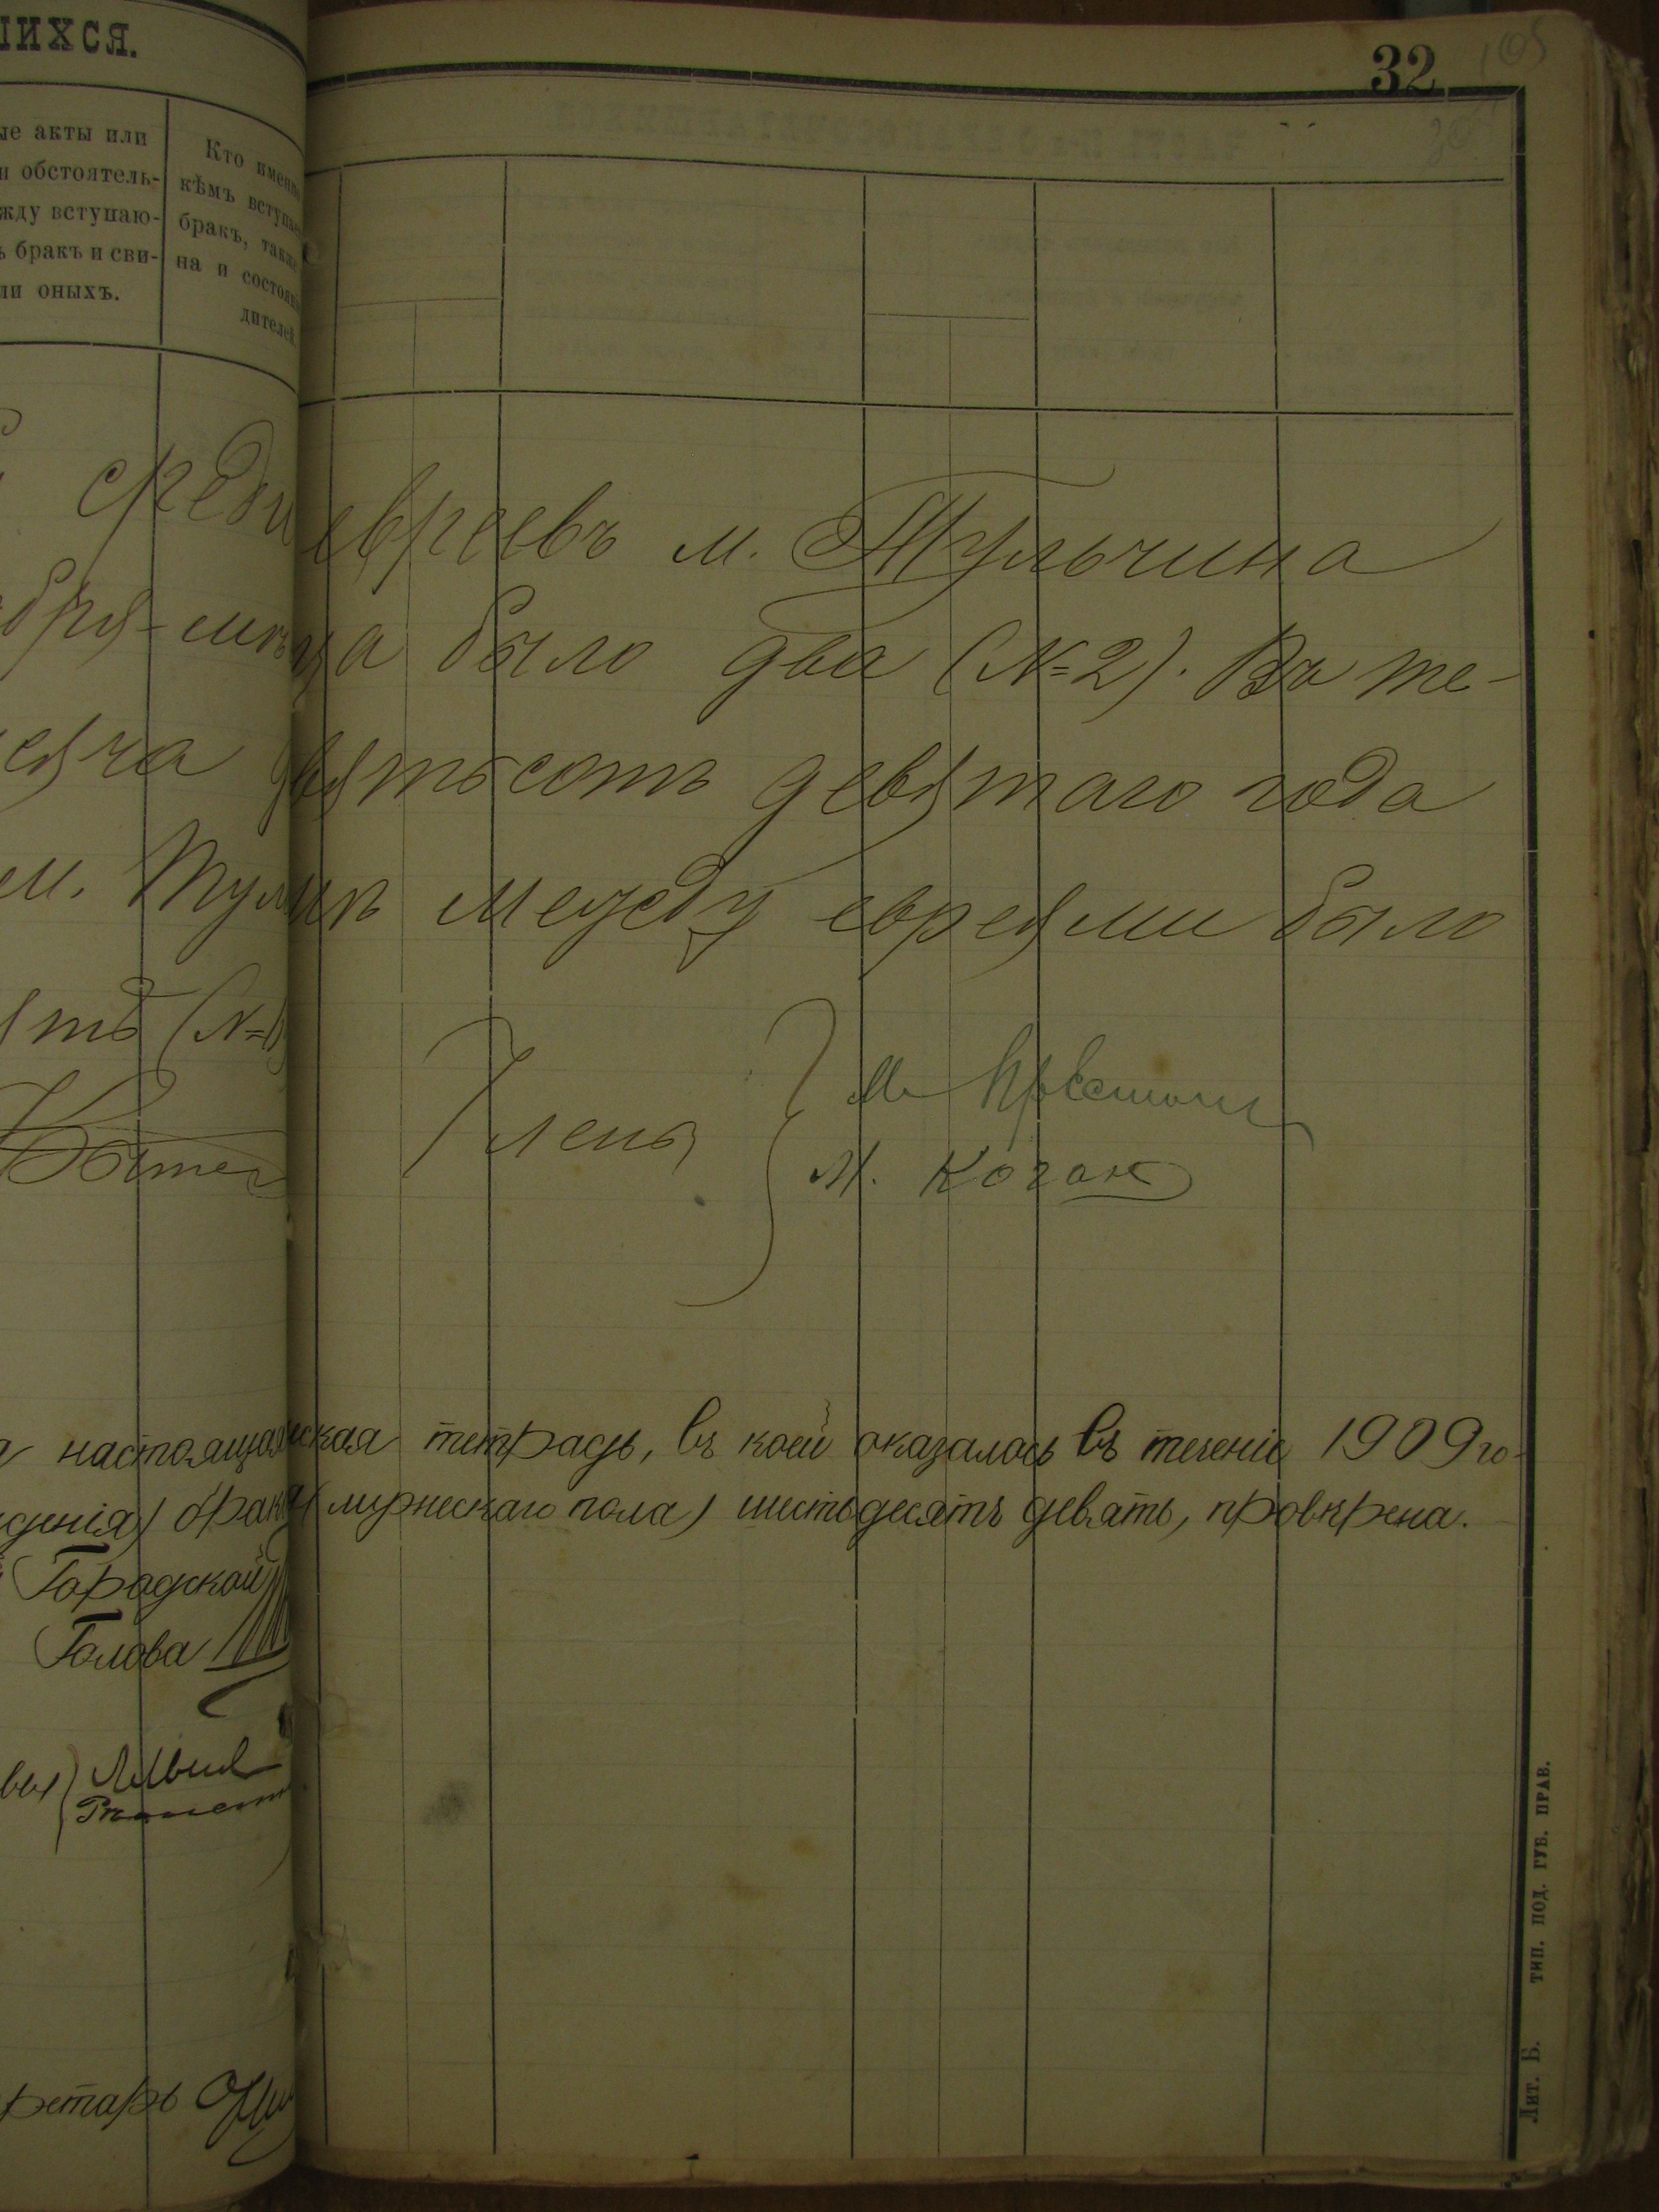 шихся.
32
ые акты или
и обстоятель-
жду вступаю-
ъ бракъ и сви-
ли оныхъ.
Кто именно
кѣмъ вступае
бракъ, также
на и состоян
дителей
среди евреевъ м. Тульчина
бря мѣсяца было два (№2). Въ те-
сяча девятьсотъ девятаго года
м. Тульчинѣ между евреями было
ять (№
Члены
М.
М. Коган
настоящая ская тетрадь, въ коей оказалось въ теченіе 1909 го-
денія) брак мужескаго пола) шестьдесятъ девять, провѣрена.
Городской
Голова
ретарь
Лит. Б. тип. под. губ. прав.